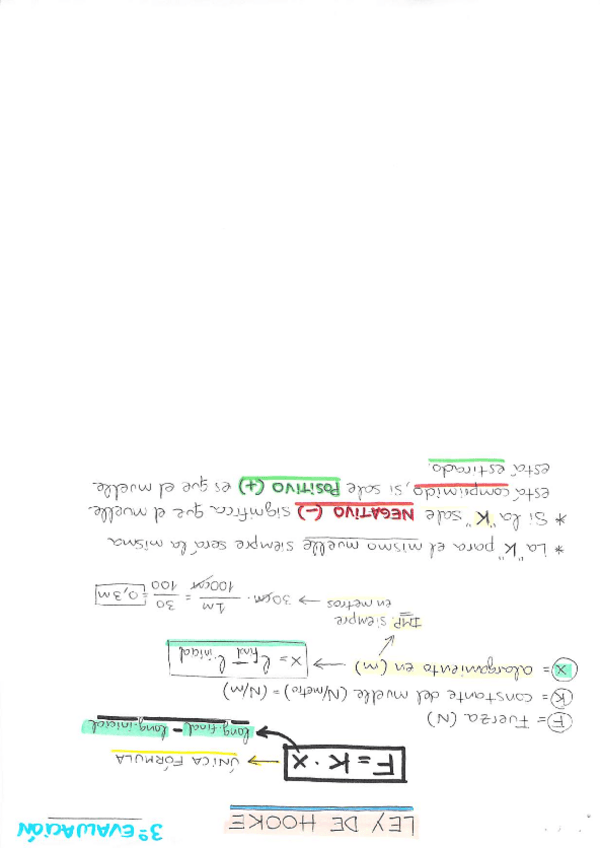 3º EVALUACIÓN
LEY DE HOOKE
F = K · x ← ÚNICA FÓRMULA
long. final - long. inicial
F = Fuerza (N)
K = constante del muelle (N/metro) = (N/m)
x = alargamiento en (m) → x = l final - l inicial
IMP. siempre
en metros → 30cm · 1m / 100cm = 30 / 100 = 0,3m
* La "K" para el mismo muelle siempre será la misma
* Si la "K" sale NEGATIVO (-) significa que el muelle
está comprimido, si sale POSITIVO (+) es que el muelle
está estirado.